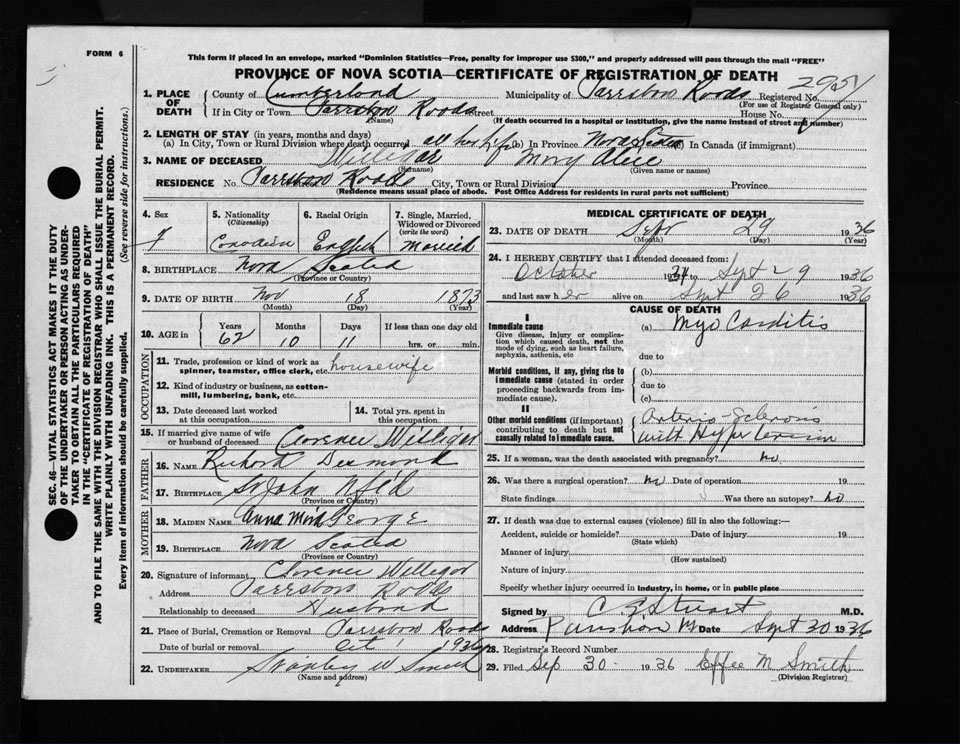 FORM 6
This form if placed in an envelope, marked "Dominion Statistics—Free, penalty for improper use $300," and properly addressed will pass through the mail "FREE"
PROVINCE OF NOVA SCOTIA—CERTIFICATE OF REGISTRATION OF DEATH
2951
1. PLACE OF DEATH
County of Cumberland Municipality of Parrsboro Roads Registered No.
(For use of Registrar General only)
If in City or Town Parrsboro Roads Street House No.
(Name)
(If death occurred in a hospital or institution, give the name instead of street and number)
2. LENGTH OF STAY (in years, months and days)
(a) In City, Town or Rural Division where death occurred all her life (b) In Province Nova Scotia In Canada (if immigrant)
3. NAME OF DECEASED Willigar Mary Alice
(Surname) (Given name or names)
RESIDENCE No. Parrsboro Roads City, Town or Rural Division Province
(Residence means usual place of abode. Post Office Address for residents in rural parts not sufficient)
4. Sex F
5. Nationality (Citizenship) Canadian
6. Racial Origin English
7. Single, Married, Widowed or Divorced (write the word) Married
8. BIRTHPLACE Nova Scotia
(Province or Country)
9. DATE OF BIRTH Nov 18 1873
(Month) (Day) (Year)
10. AGE in Years Months Days If less than one day old
62 10 11 hrs. or min.
OCCUPATION
11. Trade, profession or kind of work as spinner, teamster, office clerk, etc. housewife
12. Kind of industry or business, as cotton-mill, lumbering, bank, etc.
13. Date deceased last worked at this occupation
14. Total yrs. spent in this occupation
15. If married give name of wife or husband of deceased Clarence Willigar
FATHER
16. NAME Richard Desmond
17. BIRTHPLACE St John Nfld
(Province or Country)
MOTHER
18. MAIDEN NAME Anna George
19. BIRTHPLACE Nova Scotia
(Province or Country)
20. Signature of informant Clarence Willigar
Address Parrsboro Roads
Relationship to deceased Husband
21. Place of Burial, Cremation or Removal Parrsboro Roads
Date of burial or removal Oct 1 1936
22. UNDERTAKER Stanley W Smith
(Name and address)
MEDICAL CERTIFICATE OF DEATH
23. DATE OF DEATH Sept 29 1936
(Month) (Day) (Year)
24. I HEREBY CERTIFY that I attended deceased from:
October 19 to Sept 29 1936
and last saw her alive on Sept 26 1936
CAUSE OF DEATH
I
Immediate cause
Give disease, injury or complication which caused death, not the mode of dying, such as heart failure, asphyxia, asthenia, etc
(a) Myo Carditis
due to
Morbid conditions, if any, giving rise to immediate cause (stated in order proceeding backwards from immediate cause).
(b)
due to
(c)
II
Other morbid conditions (if important) contributing to death but not causally related to immediate cause.
Arterio-Sclerosis
with Hypertension
25. If a woman, was the death associated with pregnancy? no
26. Was there a surgical operation? no Date of operation 19
State findings Was there an autopsy? no
27. If death was due to external causes (violence) fill in also the following:—
Accident, suicide or homicide? Date of injury 19
(State which)
Manner of injury
(How sustained)
Nature of injury
Specify whether injury occurred in industry, in home, or in public place
Signed by C E Stuart M.D.
Address Date Sept 30 1936
28. Registrar's Record Number
29. Filed Sep 30- 1936 Effee M Smith
(Division Registrar)
SEC. 46—VITAL STATISTICS ACT MAKES IT THE DUTY
OF THE UNDERTAKER OR PERSON ACTING AS UNDER-
TAKER TO OBTAIN ALL THE PARTICULARS REQUIRED
IN THE "CERTIFICATE OF REGISTRATION OF DEATH"
AND TO FILE THE SAME WITH THE DIVISION REGISTRAR WHO SHALL ISSUE THE BURIAL PERMIT.
WRITE PLAINLY WITH UNFADING INK. THIS IS A PERMANENT RECORD.
Every item of information should be carefully supplied. (See reverse side for instructions.)